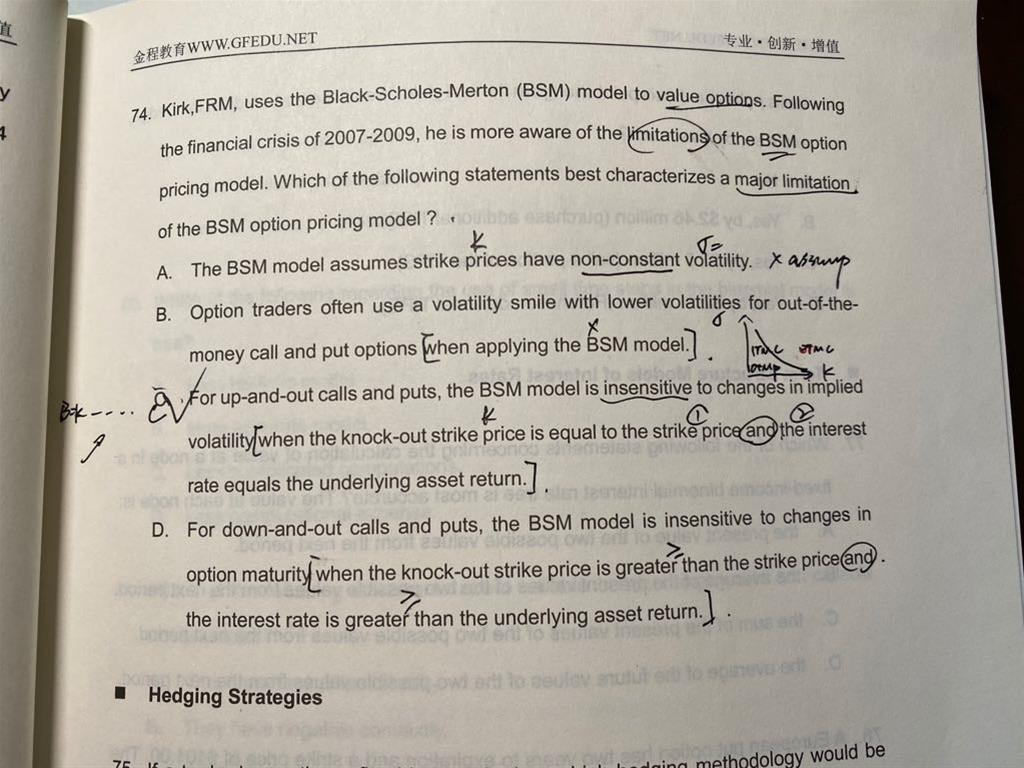 金程教育WWW.GFEDU.NET
专业·创新·增值
74. Kirk,FRM, uses the Black-Scholes-Merton (BSM) model to value options. Following
the financial crisis of 2007-2009, he is more aware of the limitations of the BSM option
pricing model. Which of the following statements best characterizes a major limitation
of the BSM option pricing model ?
K σ=
A. The BSM model assumes strike prices have non-constant volatility. × assump
B. Option traders often use a volatility smile with lower volatilities for out-of-the-
money call and put options [when applying the BSM model.]
σ ITMC OTMC
OTMP K
C. For up-and-out calls and puts, the BSM model is insensitive to changes in implied
B=K
K ① ②
volatility[when the knock-out strike price is equal to the strike price and the interest
rate equals the underlying asset return.]
D. For down-and-out calls and puts, the BSM model is insensitive to changes in
option maturity[when the knock-out strike price is greater than the strike price and
the interest rate is greater than the underlying asset return.]
■ Hedging Strategies
75. If
hedging methodology would be